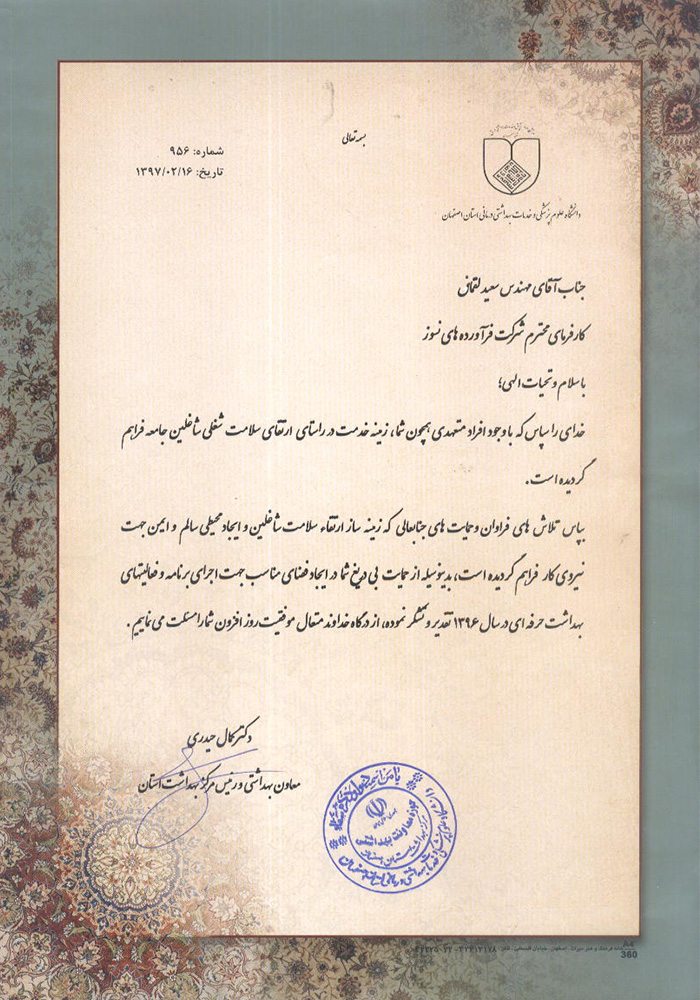 بسمه تعالی
شماره: ۹۵۶
تاریخ: ۱۳۹۷/۰۲/۱۶
دانشگاه علوم پزشکی و خدمات بهداشتی درمانی استان اصفهان
جناب آقای مهندس سعید لقمانی
کارفرمای محترم شرکت فرآورده های نسوز
با سلام و تحیات الهی؛
خدای را سپاس که با وجود افراد متعهدی همچون شما، زمینه خدمت در راستای ارتقای سلامت شغلی شاغلین جامعه فراهم
گردیده است.
بپاس تلاش های فراوان و حمایت های جنابعالی که زمینه ساز ارتقاء سلامت شاغلین و ایجاد محیطی سالم و ایمن جهت
نیروی کار فراهم گردیده است، بدینوسیله از حمایت بی دریغ شما در ایجاد فضای مناسب جهت اجرای برنامه و فعالیتهای
بهداشت حرفه ای در سال ۱۳۹۶ تقدیر و تشکر نموده، از درگاه خداوند متعال موفقیت روز افزون شما را مسئلت می نماییم.
دکتر کمال حیدری
معاون بهداشتی و رئیس مرکز بهداشت استان
حوزه معاونت بهداشتی
A4
360